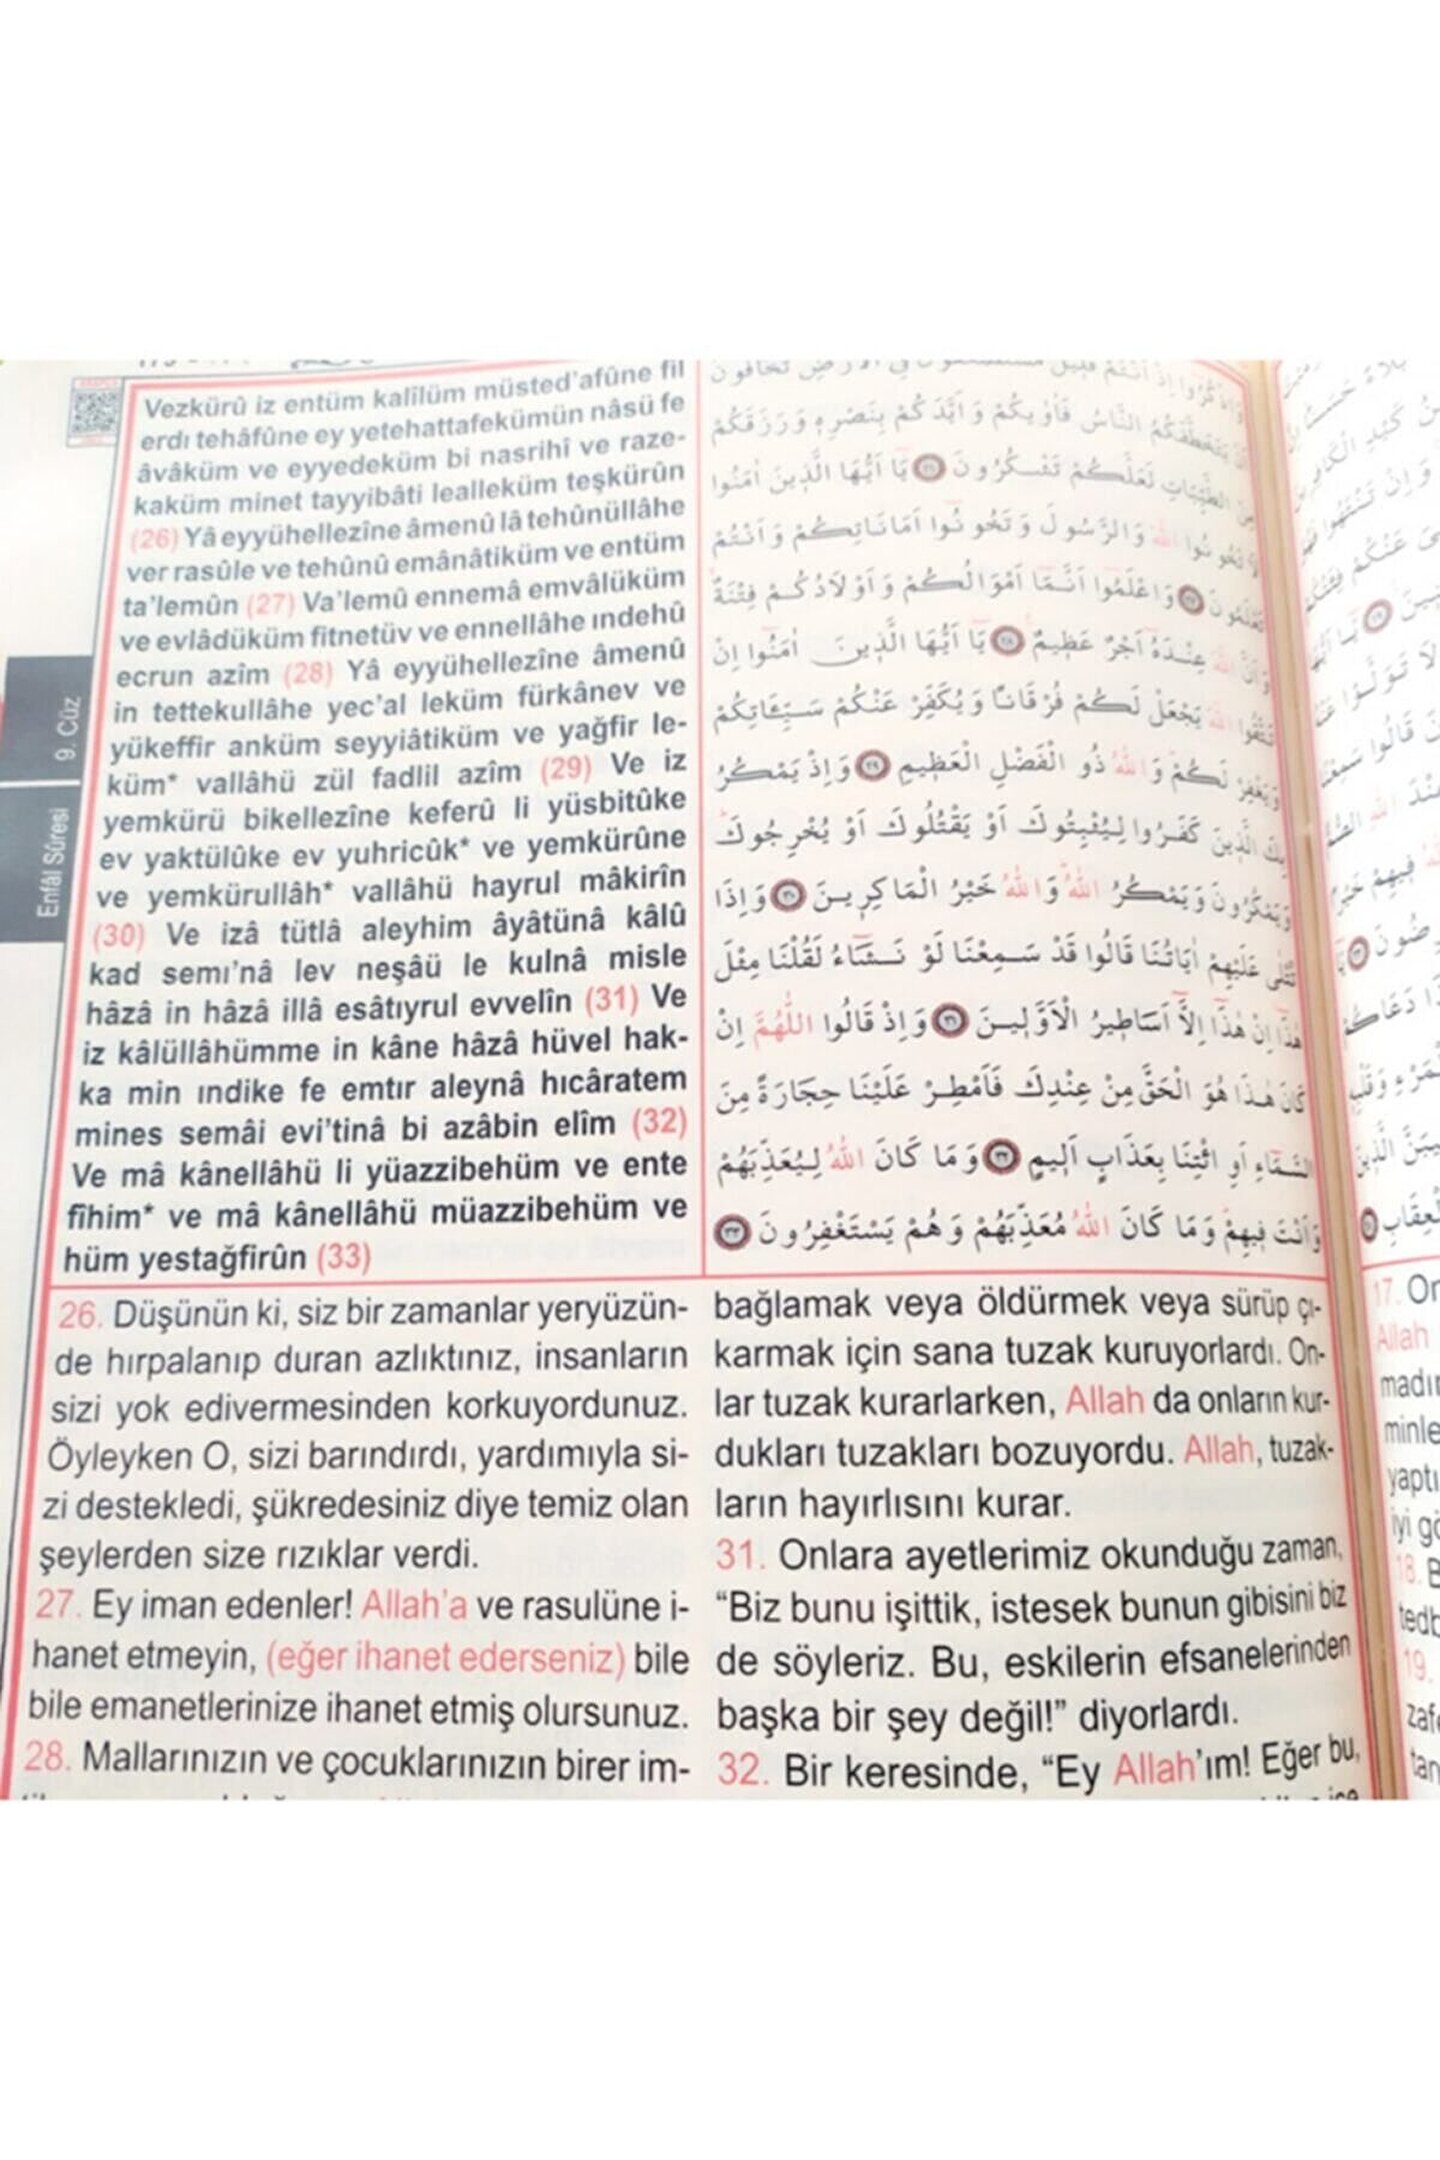 9. Cüz
Enfâl Sûresi
Vezkürû iz entüm kalîlüm müsted'afûne fil
erdı tehâfûne ey yetehattafekümün nâsü fe
âvâküm ve eyyedeküm bi nasrihî ve raze-
kaküm minet tayyibâti lealleküm teşkürûn
(26) Yâ eyyühellezîne âmenû lâ tehûnüllâhe
ver rasûle ve tehûnû emânâtiküm ve entüm
ta'lemûn (27) Va'lemû ennemâ emvâlüküm
ve evlâdüküm fitnetüv ve ennellâhe ındehû
ecrun azîm (28) Yâ eyyühellezîne âmenû
in tettekullâhe yec'al leküm fürkânev ve
yükeffir anküm seyyiâtiküm ve yağfir le-
küm* vallâhü zül fadlil azîm (29) Ve iz
yemkürü bikellezîne keferû li yüsbitûke
ev yaktülûke ev yuhricûk* ve yemkürûne
ve yemkürullâh* vallâhü hayrul mâkirîn
(30) Ve izâ tütlâ aleyhim âyâtünâ kâlû
kad semı'nâ lev neşâü le kulnâ misle
hâzâ in hâzâ illâ esâtıyrul evvelîn (31) Ve
iz kâlüllâhümme in kâne hâzâ hüvel hak-
ka min ındike fe emtır aleynâ hıcâratem
mines semâi evi'tinâ bi azâbin elîm (32)
Ve mâ kânellâhü li yüazzibehüm ve ente
fîhim* ve mâ kânellâhü müazzibehüm ve
hüm yestağfirûn (33)
يَتَخَطَّفَكُمُ النَّاسُ فَاٰوٰيكُمْ وَاَيَّدَكُمْ بِنَصْرِهٖ وَرَزَقَكُمْ
مِنَ الطَّيِّبَاتِ لَعَلَّكُمْ تَشْكُرُونَ ﴿٢٦﴾ يَٓا اَيُّهَا الَّذٖينَ اٰمَنُوا
لَا تَخُونُوا اللّٰهَ وَالرَّسُولَ وَتَخُونُٓوا اَمَانَاتِكُمْ وَاَنْتُمْ
تَعْلَمُونَ ﴿٢٧﴾ وَاعْلَمُٓوا اَنَّمَٓا اَمْوَالُكُمْ وَاَوْلَادُكُمْ فِتْنَةٌ
وَاَنَّ اللّٰهَ عِنْدَهُٓ اَجْرٌ عَظٖيمٌ ﴿٢٨﴾ يَٓا اَيُّهَا الَّذٖينَ اٰمَنُٓوا اِنْ
تَتَّقُوا اللّٰهَ يَجْعَلْ لَكُمْ فُرْقَانًا وَيُكَفِّرْ عَنْكُمْ سَيِّـَٔاتِكُمْ
وَيَغْفِرْ لَكُمْ وَاللّٰهُ ذُو الْفَضْلِ الْعَظٖيمِ ﴿٢٩﴾ وَاِذْ يَمْكُرُ
بِكَ الَّذٖينَ كَفَرُوا لِيُثْبِتُوكَ اَوْ يَقْتُلُوكَ اَوْ يُخْرِجُوكَ
وَيَمْكُرُونَ وَيَمْكُرُ اللّٰهُ وَاللّٰهُ خَيْرُ الْمَاكِرٖينَ ﴿٣٠﴾ وَاِذَا
تُتْلٰى عَلَيْهِمْ اٰيَاتُنَا قَالُوا قَدْ سَمِعْنَا لَوْ نَشَٓاءُ لَقُلْنَا مِثْلَ
هٰذَٓا اِنْ هٰذَٓا اِلَّٓا اَسَاطٖيرُ الْاَوَّلٖينَ ﴿٣١﴾ وَاِذْ قَالُوا اللّٰهُمَّ اِنْ
كَانَ هٰذَا هُوَ الْحَقَّ مِنْ عِنْدِكَ فَاَمْطِرْ عَلَيْنَا حِجَارَةً مِنَ
السَّمَٓاءِ اَوِ ائْتِنَا بِعَذَابٍ اَلٖيمٍ ﴿٣٢﴾ وَمَا كَانَ اللّٰهُ لِيُعَذِّبَهُمْ
وَاَنْتَ فٖيهِمْ وَمَا كَانَ اللّٰهُ مُعَذِّبَهُمْ وَهُمْ يَسْتَغْفِرُونَ ﴿٣٣﴾
26. Düşünün ki, siz bir zamanlar yeryüzün-
de hırpalanıp duran azlıktınız, insanların
sizi yok edivermesinden korkuyordunuz.
Öyleyken O, sizi barındırdı, yardımıyla si-
zi destekledi, şükredesiniz diye temiz olan
şeylerden size rızıklar verdi.
27. Ey iman edenler! Allah'a ve rasulüne i-
hanet etmeyin, (eğer ihanet ederseniz) bile
bile emanetlerinize ihanet etmiş olursunuz.
28. Mallarınızın ve çocuklarınızın birer im-
bağlamak veya öldürmek veya sürüp çı-
karmak için sana tuzak kuruyorlardı. On-
lar tuzak kurarlarken, Allah da onların kur-
dukları tuzakları bozuyordu. Allah, tuzak-
ların hayırlısını kurar.
31. Onlara ayetlerimiz okunduğu zaman,
"Biz bunu işittik, istesek bunun gibisini biz
de söyleriz. Bu, eskilerin efsanelerinden
başka bir şey değil!" diyorlardı.
32. Bir keresinde, "Ey Allah'ım! Eğer bu,
17. On
Allah
18. B
19.